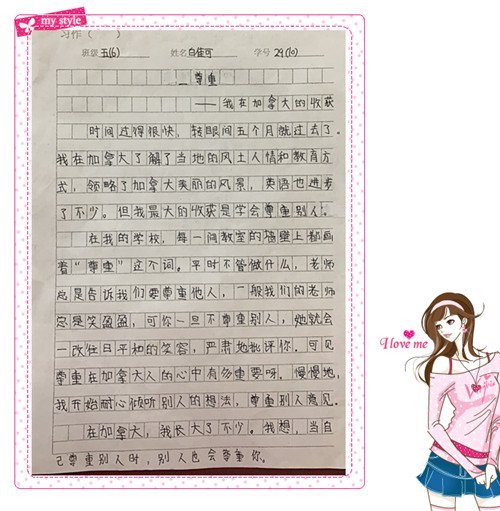 my style
习作（ ）
班级 五(6) 姓名 白佳可 学号 29(10)
尊重
——我在加拿大的收获
时间过得很快，转眼间五个月就过去了。
我在加拿大了解了当地的风土人情和教育方
式，领略了加拿大美丽的风景，英语也进步
了不少。但我最大的收获是学会尊重别人。
在我的学校，每一间教室的墙壁上都画
着“尊重”这个词。平时不管做什么，老师
总是告诉我们要尊重他人，一般我们的老师
总是笑盈盈，可你一旦不尊重别人，她就会
一改往日平和的笑容，严肃地批评你。可见
尊重在加拿大人的心中有多重要呀。慢慢地，
我开始耐心倾听别人的想法，尊重别人意见。
在加拿大，我长大了不少。我想，当自
己尊重别人时，别人也会尊重你。
I love me